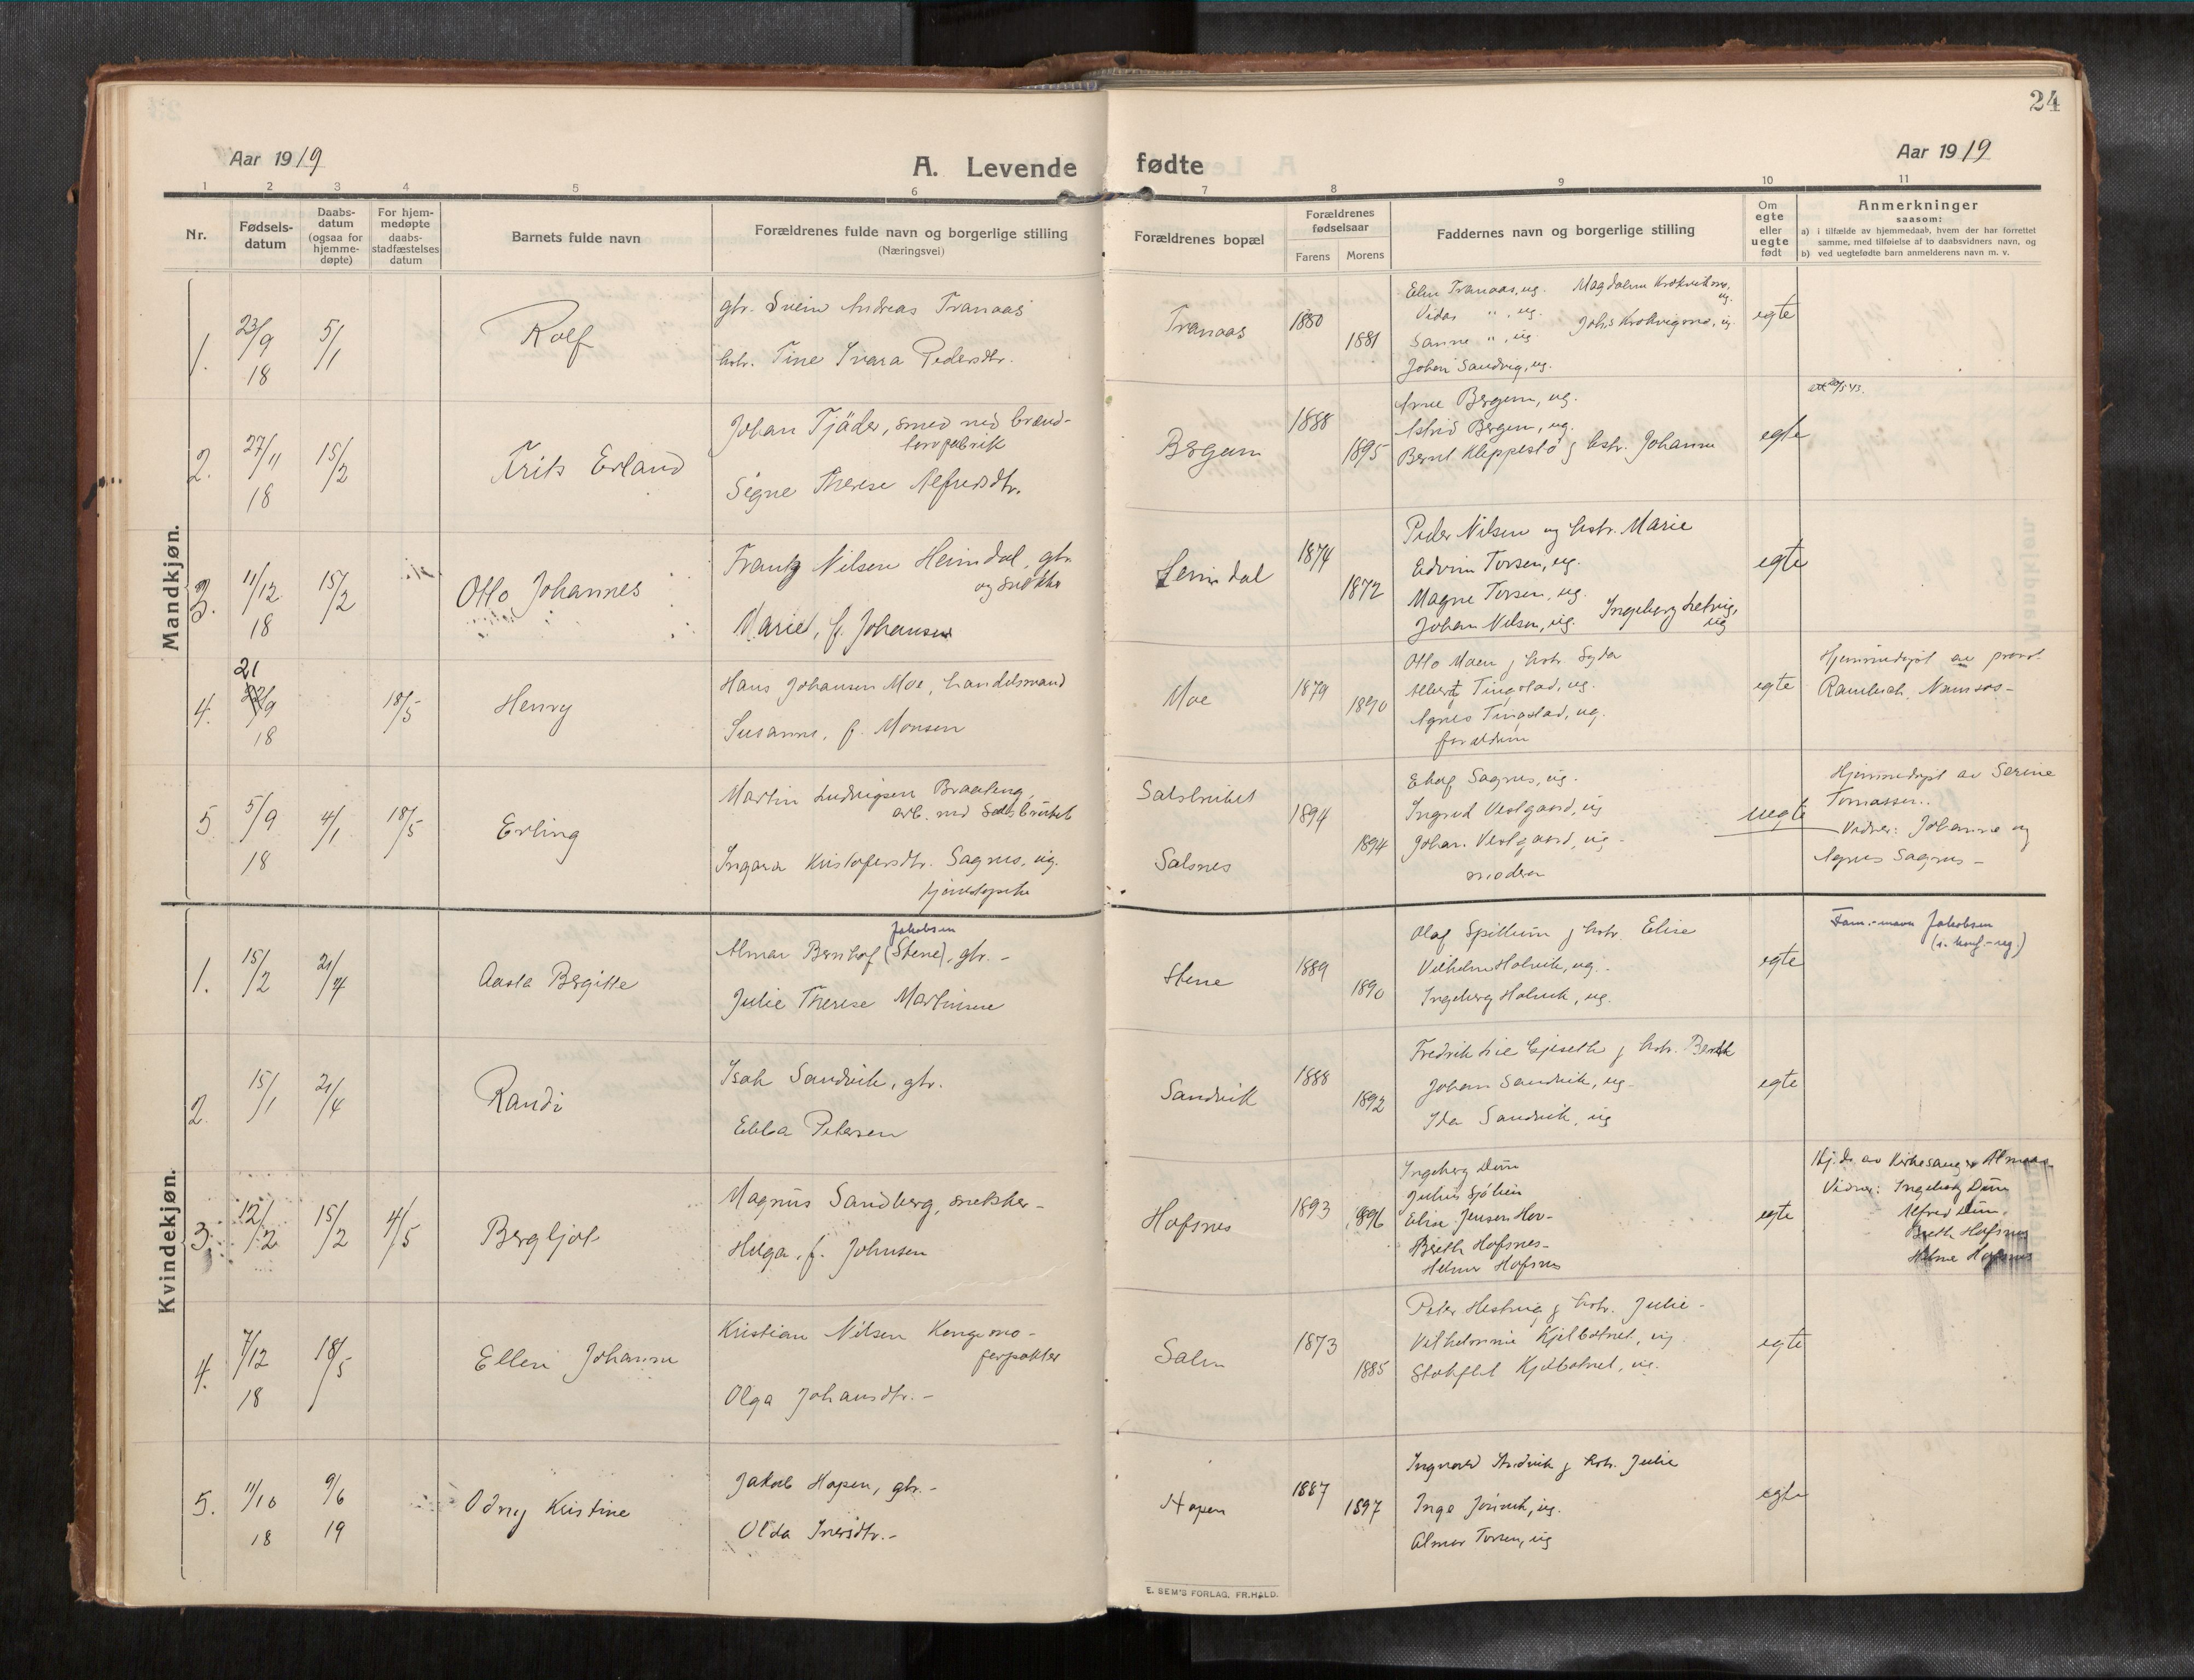 24
Aar 1919
A. Levende fødte
Aar 1919
1 2 3 4 5 6 7 8 9 10 11
Nr.
Fødsels-
datum
Daabs-
datum
(ogsaa for
hjemme-
døpte)
For hjem-
medøpte
daabs-
stadfæstelses
datum
Barnets fulde navn
Forældrenes fulde navn og borgerlige stilling
(Næringsvei)
Forældrenes bopæl
Forældrenes
fødselsaar
Farens Morens
Faddernes navn og borgerlige stilling
Om
egte
eller
uegte
født
Anmerkninger
saasom:
a) i tilfælde av hjemmedaab, hvem der har forrettet
samme, med tilføielse af to daabsvidners navn, og
b) ved uegtefødte barn anmelderens navn m. v.
Mandkjøn.
1.
23/9
18
5/1
Rolf
gbr. Svein Andreas Tranaas
hstr. Tine Ivara Pedersdtr.
Tranaas
1880
1881
Elen Tranaas, ug.
Vidar " , ug.
Sanne " , ug
Johan Sandvig, ug.
Magdalena
egte
2.
27/11
18
15/2
Frits Erland
Johan Tjäder, smed ved brænd-
torvfabrik
Signe Therese Alfredsdtr.
Bergum
1888
1895
Arne Bergum, ug.
Astrid Bergum, ug.
Bernt Kleppestø g hstr. Johanna
egte
3.
11/12
18
15/2
Otto Johannes
Frantz Nilsen Heimdal, gbr.
og snekker
Marie, f. Johansen
Heimdal
1874
1872
Peder Nilsen og hstr. Marie
Edvin Torsen, ug.
Magne Torsen, ug.
Johan Nilsen, ug. Ingeborg
ug
egte
4.
21
/9
18
18/5
Henry
Hans Johansen Moe, handelsmand
Susanna, f. Monsen
Moe
1879
1890
Otto Moen g hstr. Syda
Albert Tingstad, ug.
Agnes Tingstad, ug.
forældrene
egte
Hjemmedøpt av provst
Rambech, Namsos-
5
5/9
18
4/1
18/5
Erling
Martin Ludvigsen Braateng,
arb. ved Salsbruket
Ingara Kristofersdtr. Sagnes, ug.
tjenestepike
Salsbruket
Salsnes
1894
1894
Sagnes, ug.
Ingrid Vestgaard, ug
Johan Vestgaard, ug
moderen
uegte
Hjemmedøpt av Serine
Tomassen.
Vidner: Johanna og
Agnes Sagnes -
Kvindekjøn.
1.
15/2
21/4
Aasta Bergitte
Jakobsen
Almar Bernhof (Stene), gbr. -
Julie Therese Martinsen
Stene
1889
1890
Olaf Spillum g hstr. Elise
Vilhelm Holvik, ug.
Ingeborg Holvik, ug.
egte
Fam.-navn Jakobsen
2.
15/1
21/4
Randi
Isak Sandvik, gbr.
Ebba Petersen
Sandvik
1888
1892
Johan Sandvik, ug.
Ida Sandvik, ug
egte
3.
12/2
15/2
4/5
Bergljot
Magnus Sandberg, snekker -
Helga, f. Johnsen
Hofsnes
1893
1896
Ingeborg Dun
Julius Sjölien
Elise Jensen Hov-
Bereth Hofsnes-
Helmer Hofsnes
egte
Hj.d. av Kirkesanger Almaas
Vidner: Ingeborg Dun
Alfred Dun,
Bereth Hofsnes
Helmer Hofsnes
4.
7/12
18
18/5
Ellen Johanne
Kristian Nilsen Kongsmo -
forpakter
Olga Johansdtr. -
Salen
1873
1885
Peter Hestvig g hstr. Julie -
Vilhelmine Kjelbotnet, ug
Stokflet Kjelbotnet, ug.
egte
5.
11/10
18
9/6
19
Odny Kristine
Jakob Hopen, gbr. -
Olda Iversdtr. -
Hopen
1887
1897
Ingvald g hstr. Julie
Inge , ug.
Almar Torsen, ug
egte
E. SEM'S FORLAG, FR.HALD.